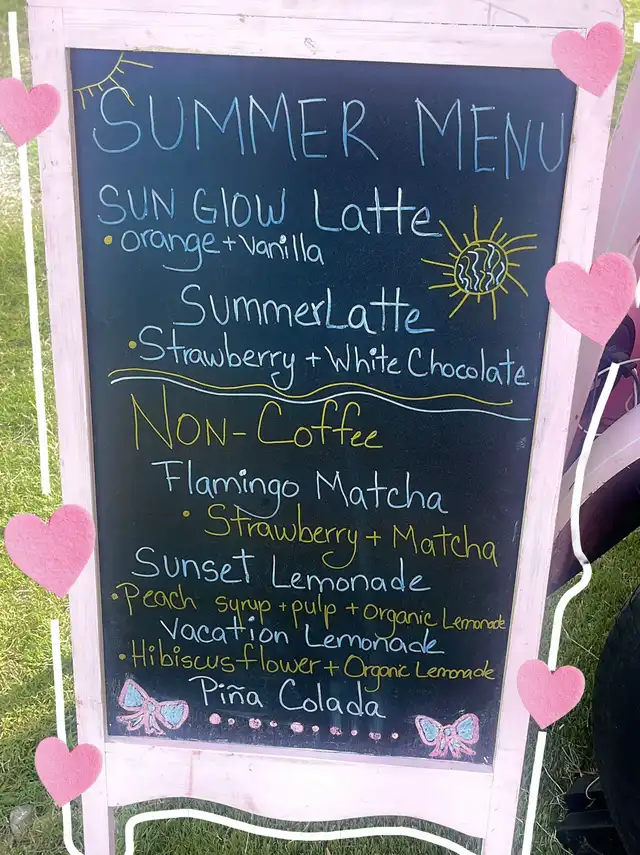 SUMMER MENU
SUN GLOW Latte
• orange + Vanilla
SummerLatte
• Strawberry + White Chocolate
NON-Coffee
Flamingo Matcha
• Strawberry + Matcha
Sunset Lemonade
• Peach syrup + pulp + organic Lemonade
Vacation Lemonade
• Hibiscus flower + Organic Lemonade
Piña Colada